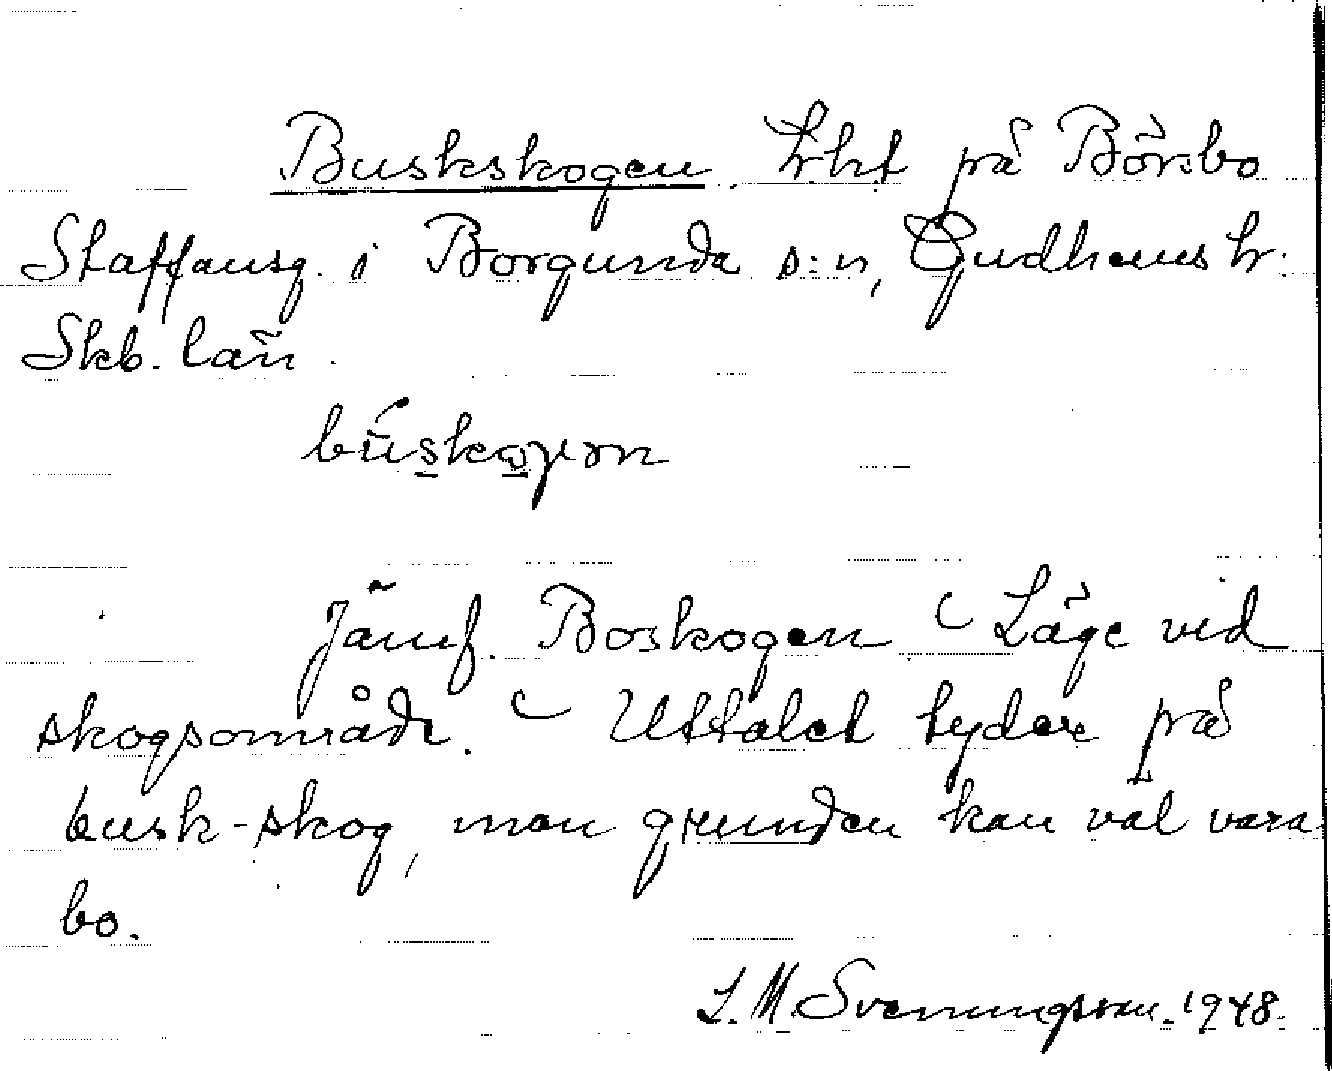 Buskskogen. Trkt på Börsbo
Staffansg. i Borgunda s:n, Gudhems hr.
Skb. län.
búskoγən
Jämf. Boskogen. Läge vid
skogsområde. Uttalet tyder på
busk-skog, men grunden kan väl vara
bo.
L. M. Svenungsson. 1948.